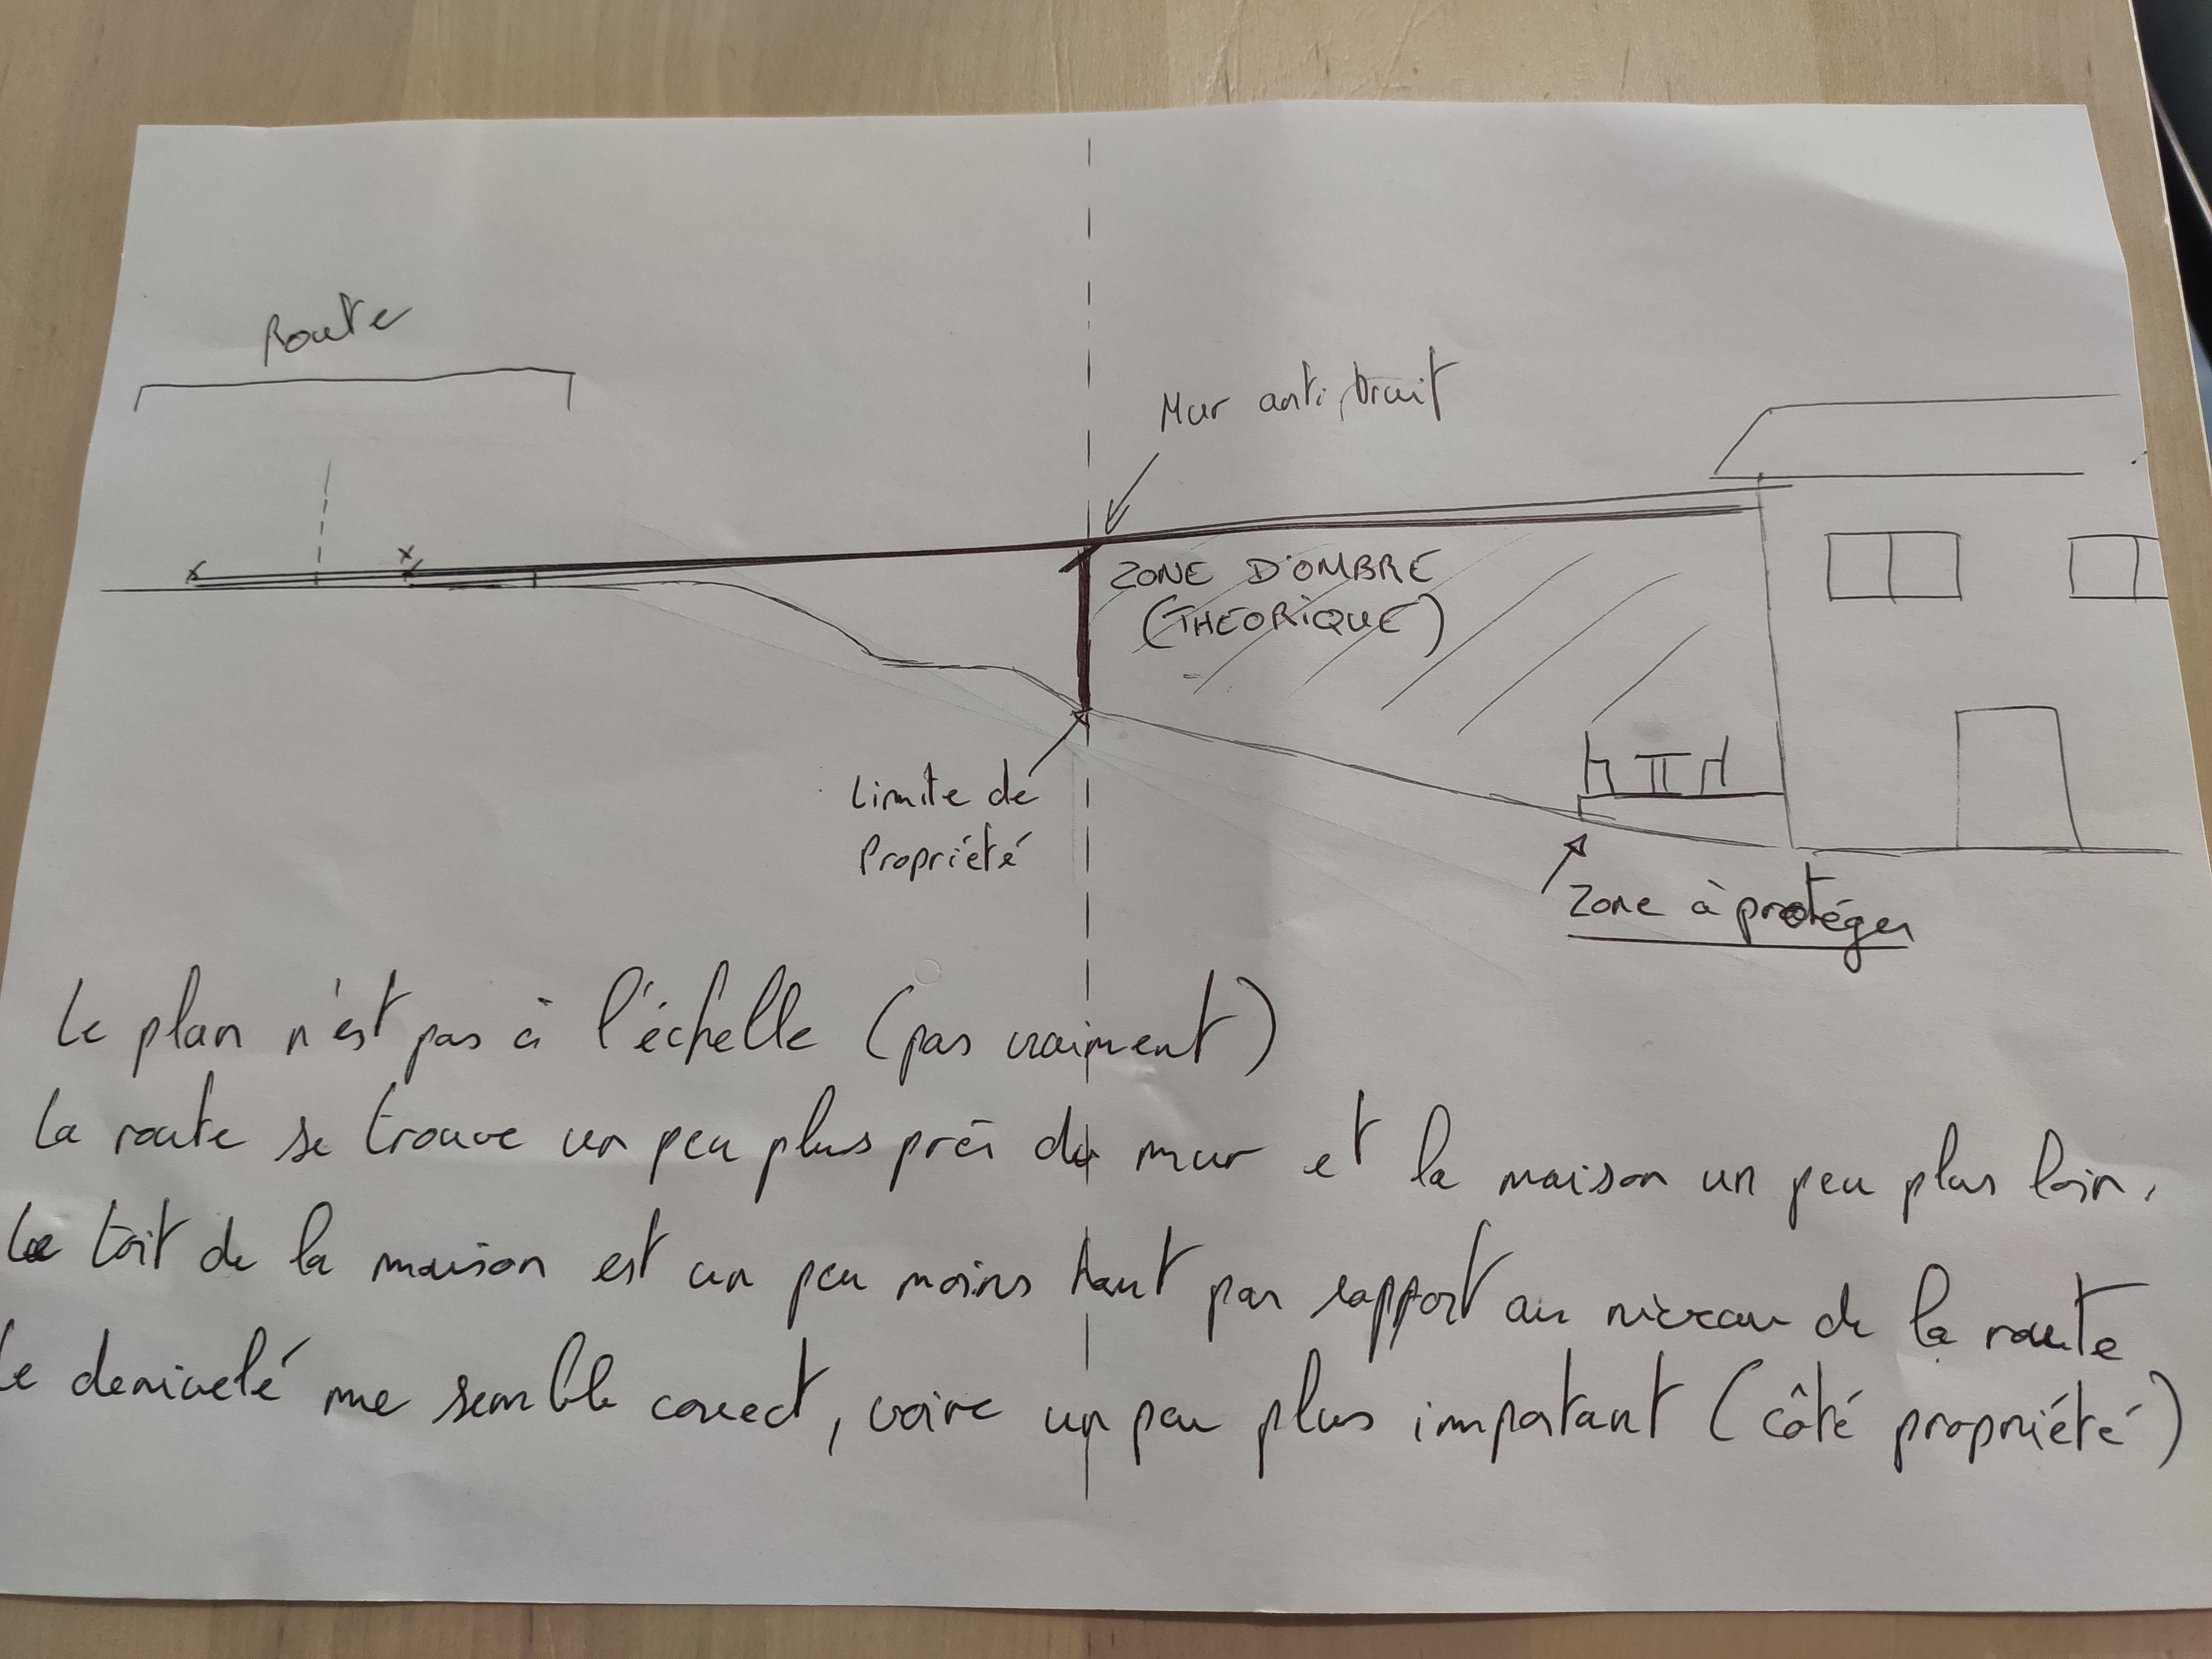 Route
Mur anti bruit
ZONE D'OMBRE
(THEORIQUE)
Limite de
Propriété
Zone à protéger
Le plan n'est pas à l'échelle (pas vraiment)
La route se trouve un peu plus près du mur et la maison un peu plus loin.
Le toit de la maison est un peu moins haut par rapport au niveau de la route
Le denivelé me semble correct, voire un peu plus important (côté propriété)